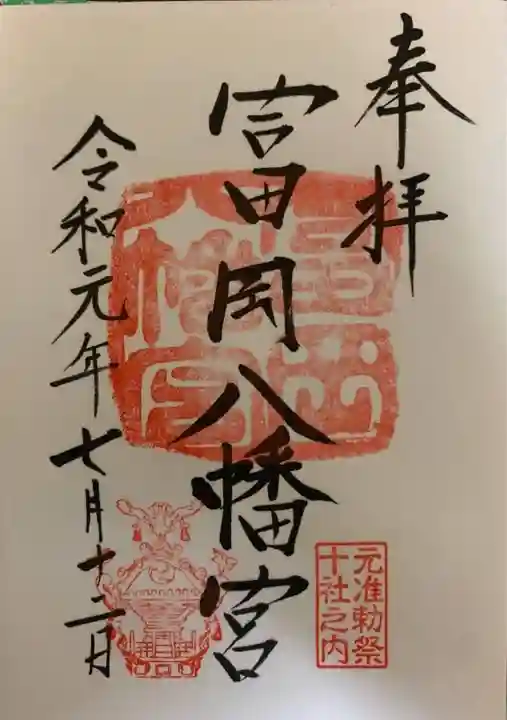 奉拝
富岡八幡宮
令和元年七月十二日
元准勅祭
十社之内